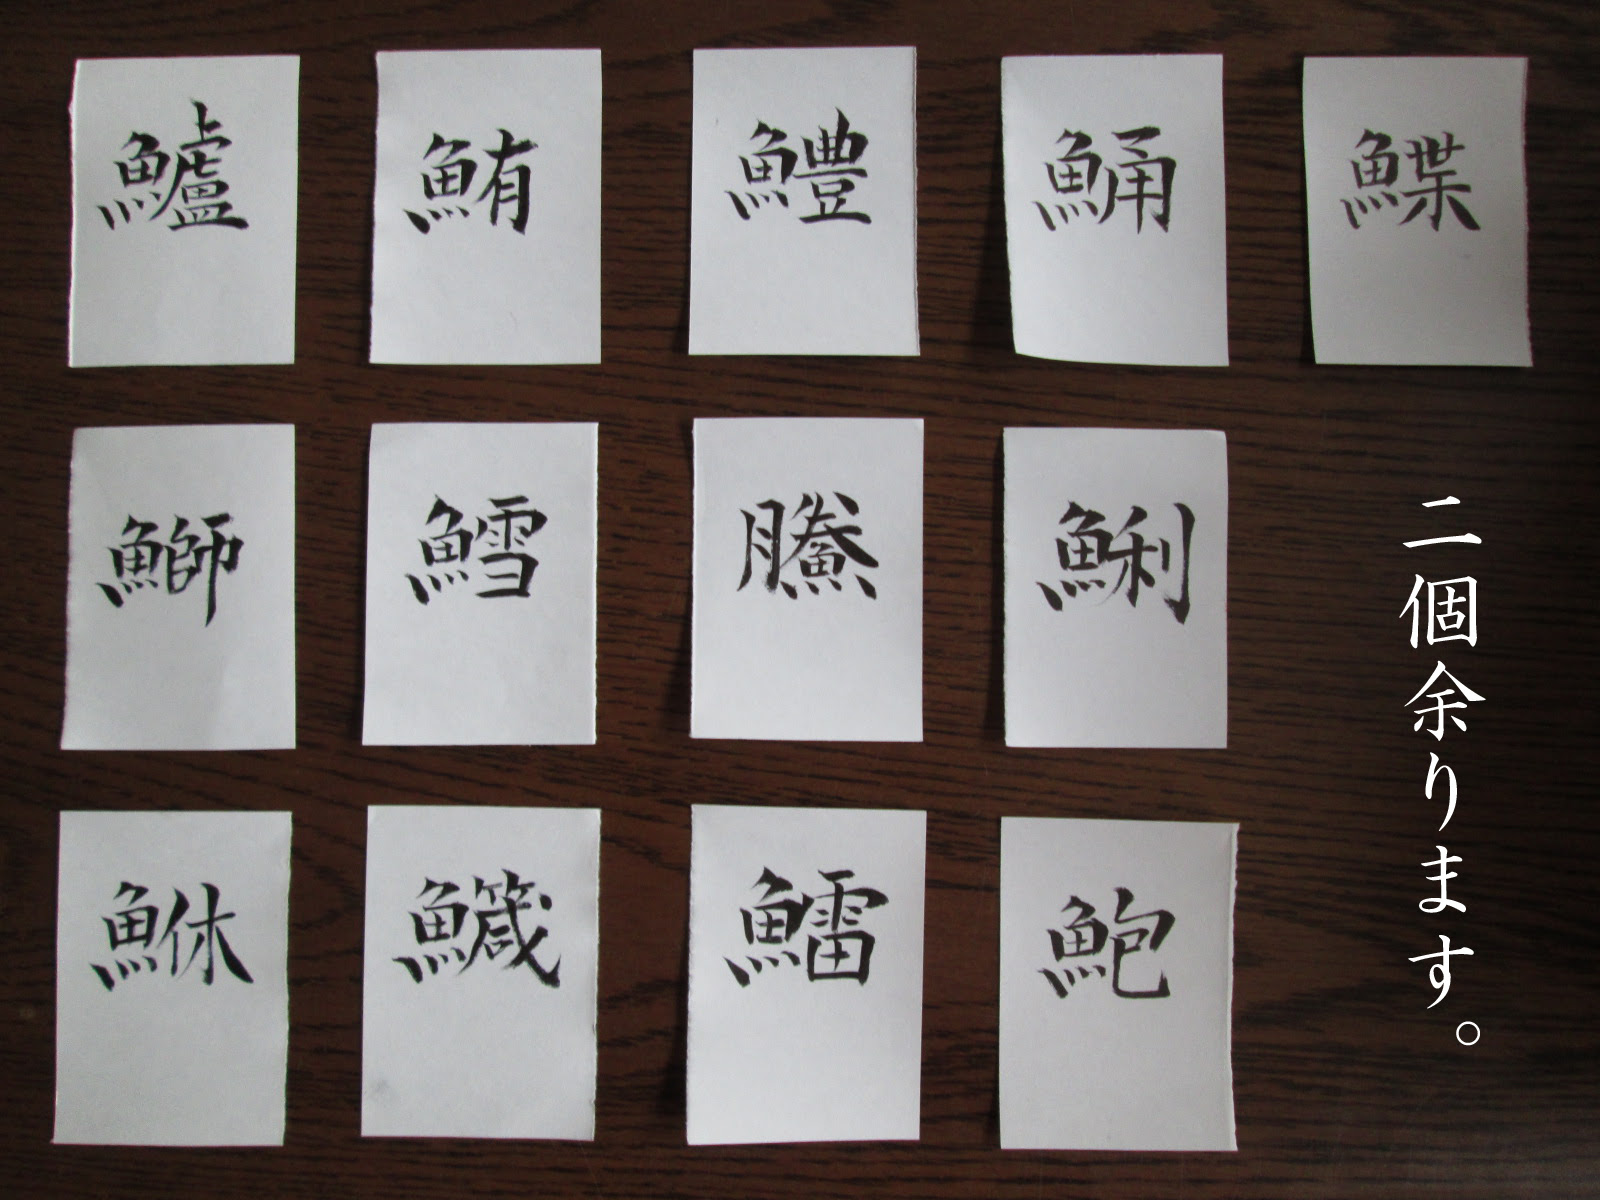 鱸 鮪 鱧 鯒 鰈
鰤 鱈 鰧 鯏
鮴 鱵 鱩 鮑
二個余ります。